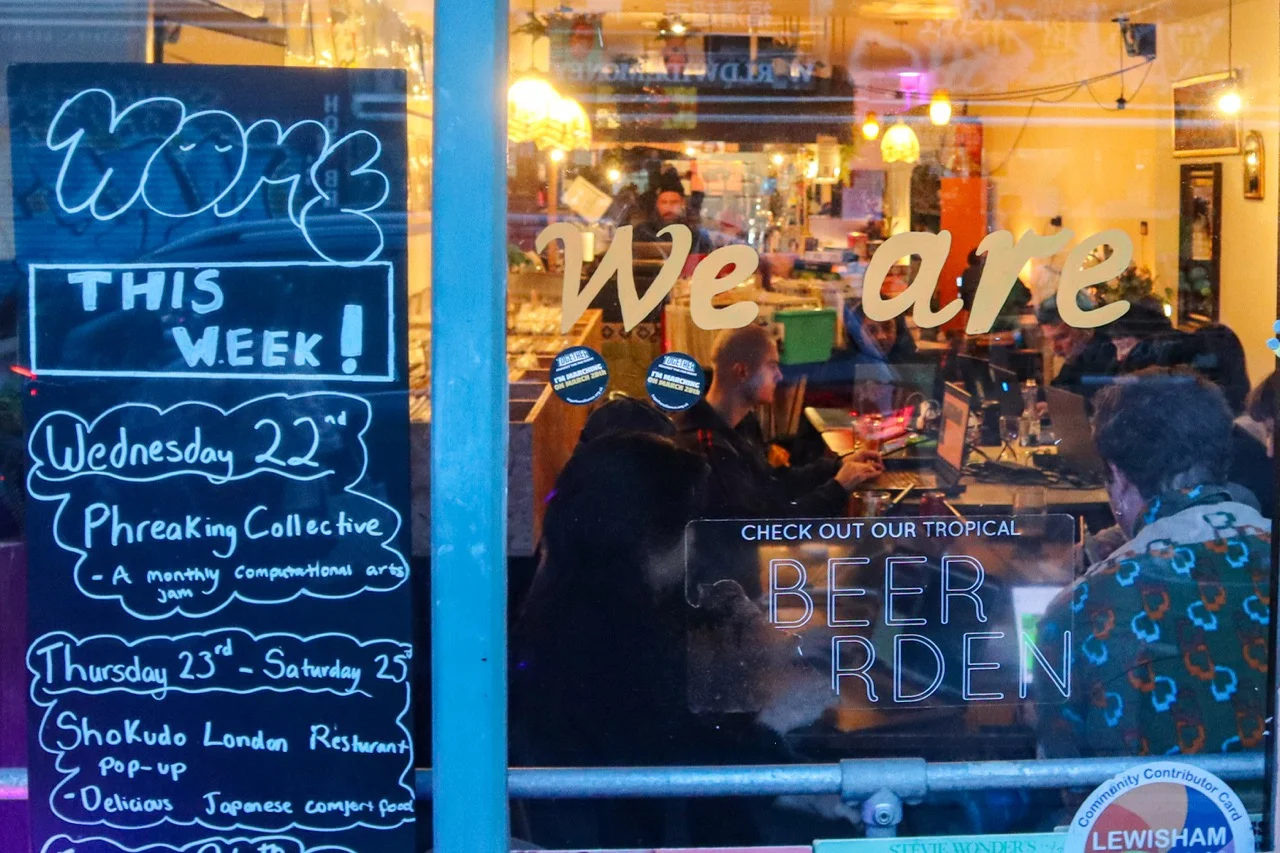 MOMS
THIS
WEEK!
Wednesday 22nd
Phreaking Collective
- A monthly computational arts
jam
Thursday 23rd - Saturday 25
Shokudo London Resturant
Pop-up
- Delicious Japanese comfort food
We are
TOGETHER
I'M MARCHING
ON MARCH 28th
TOGETHER
I'M MARCHING
ON MARCH 28th
CHECK OUT OUR TROPICAL
BEER
RDEN
Community Contributor Card
LEWISHAM
STEVIE WONDER'S